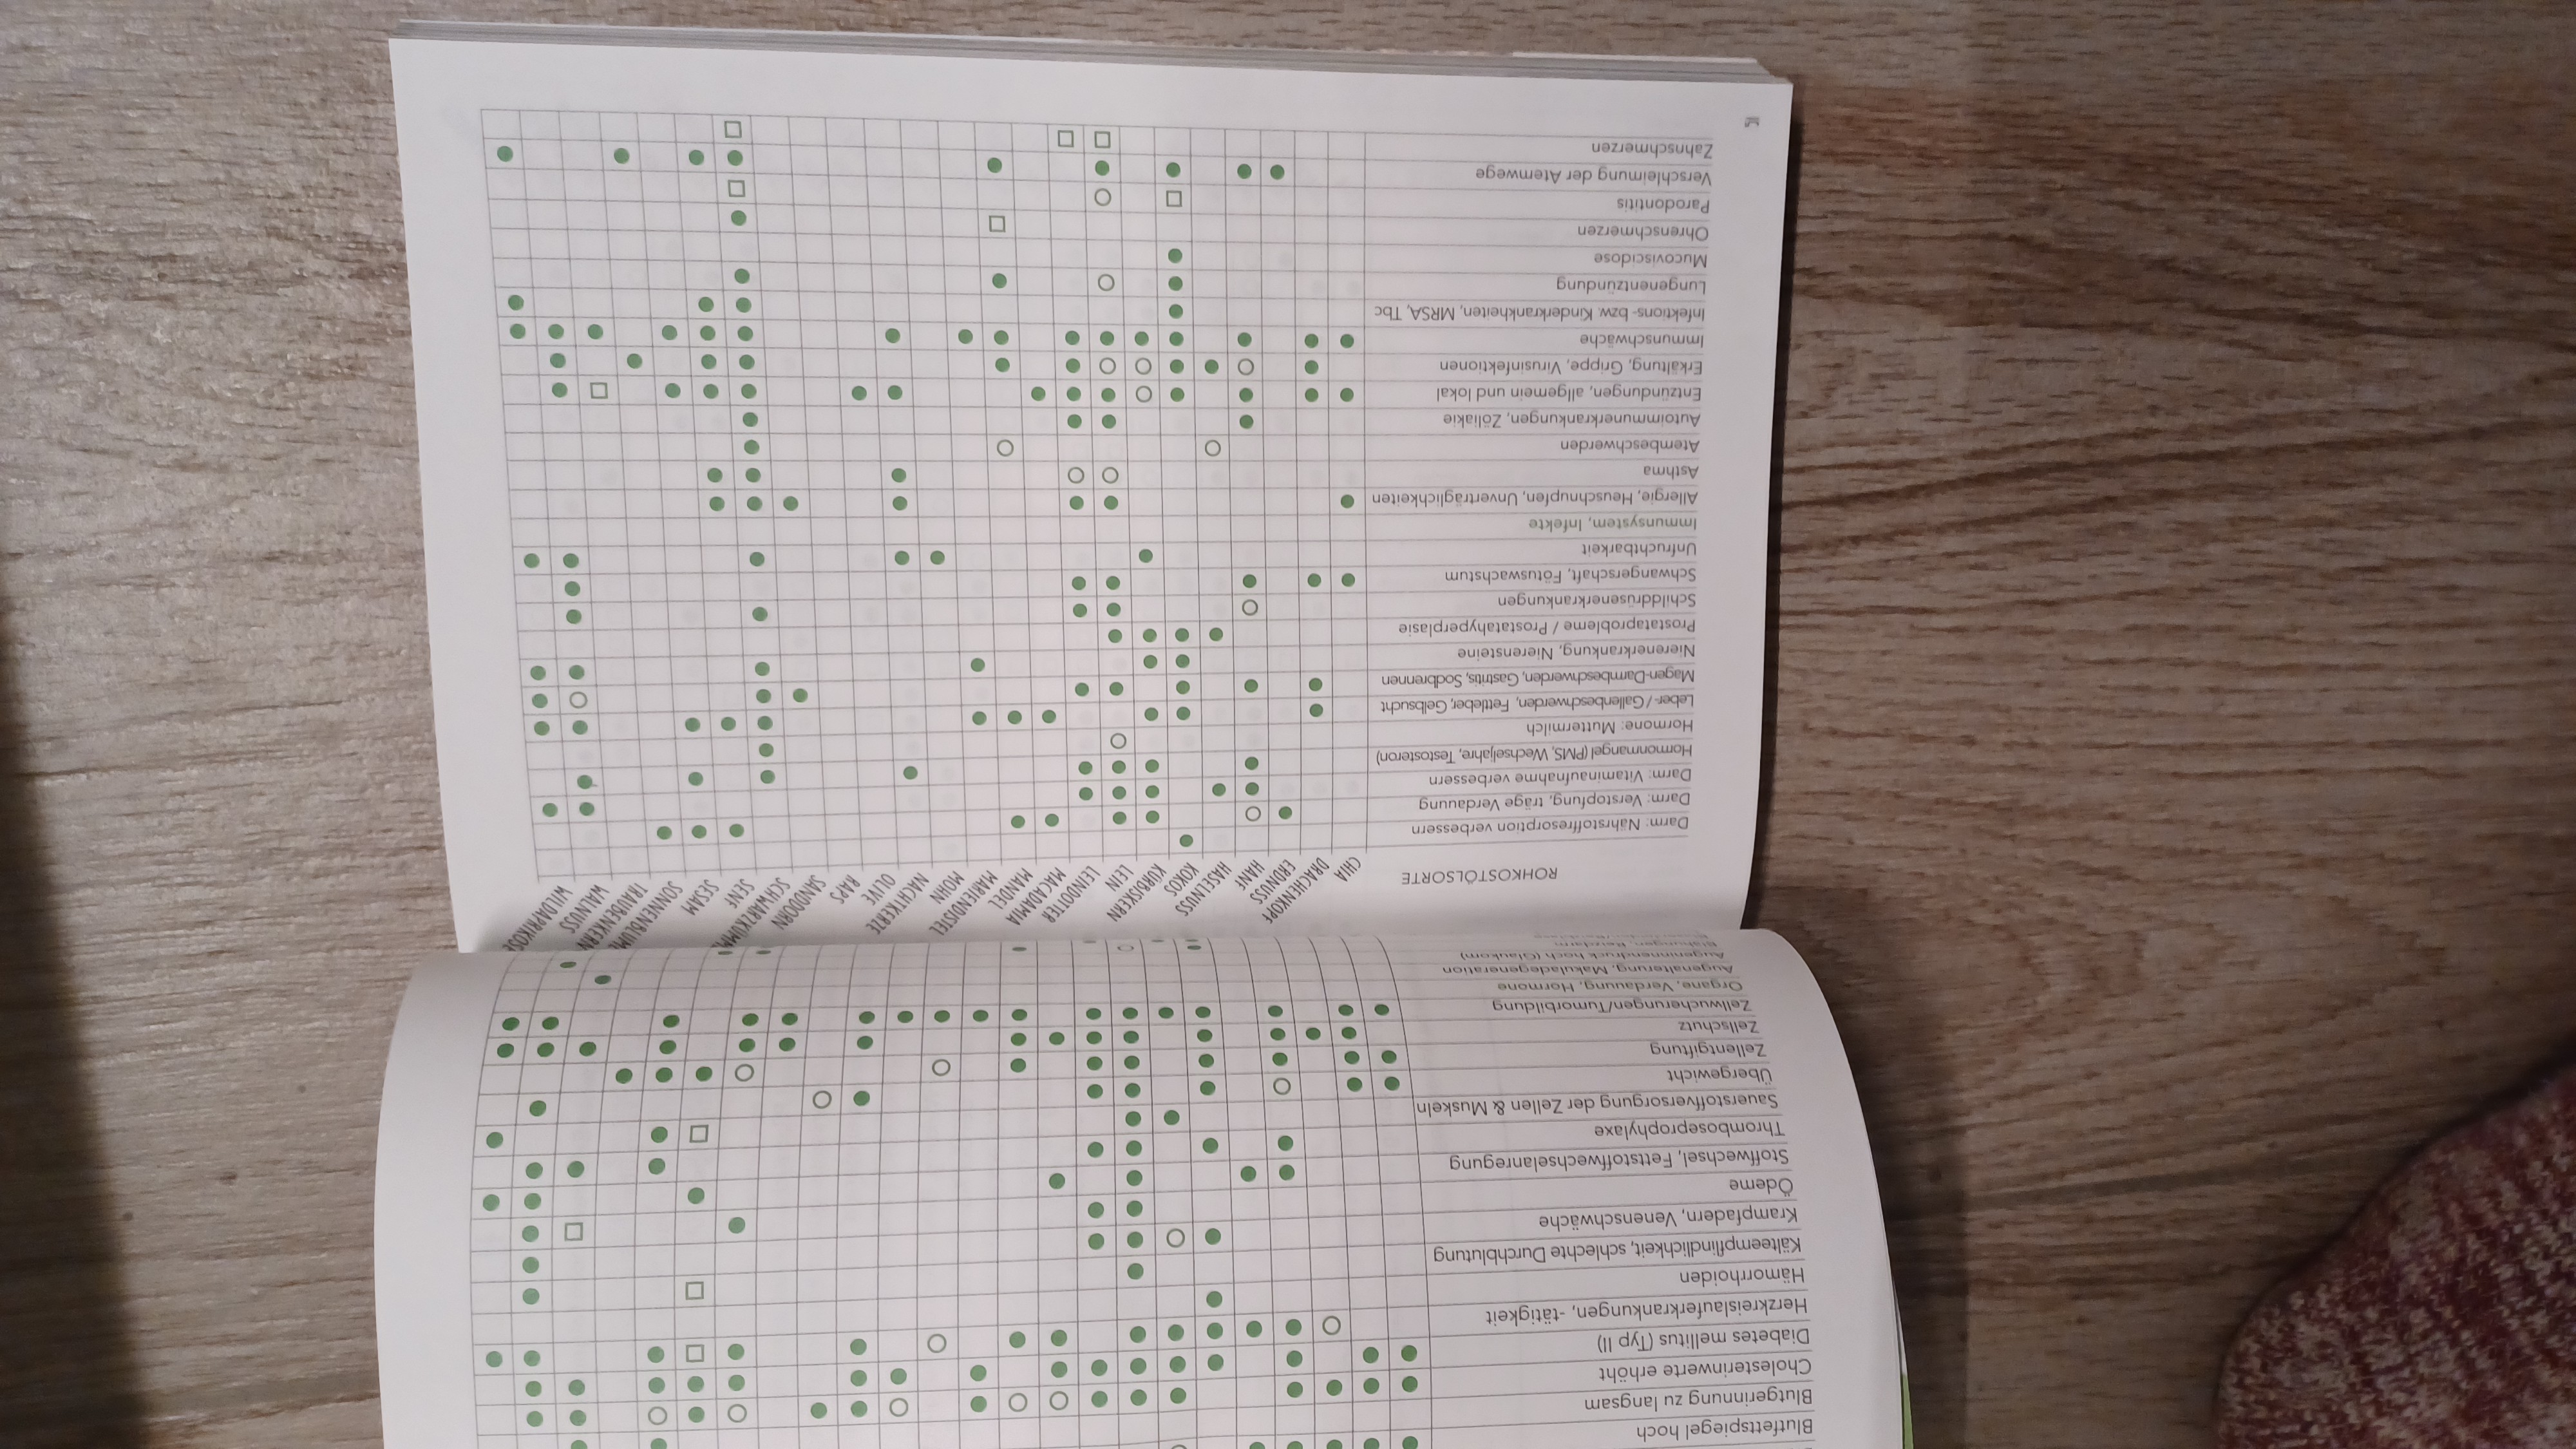 Blutfettspiegel hoch
Blutgerinnung zu langsam
Cholesterinwerte erhöht
Diabetes mellitus (Typ II)
Herzkreislauferkrankungen, -tätigkeit
Hämorrhoiden
Kälteempfindlichkeit, schlechte Durchblutung
Krampfadern, Venenschwäche
Ödeme
Stoffwechsel, Fettstoffwechselanregung
Thromboseprophylaxe
Sauerstoffversorgung der Zellen & Muskeln
Übergewicht
Zellentgiftung
Zellschutz
Zellwucherungen/Tumorbildung
Organe, Verdauung, Hormone
Augenalterung, Makuladegeneration
Augeninnendruck hoch (Glaukom)
Blähungen, Reizdarm
ROHKOSTÖLSORTE
CHIA
DRACHENKOPF
ERDNUSS
HANF
HASELNUSS
KOKOS
KÜRBISKERN
LEIN
LEINDOTTER
MACADAMIA
MANDEL
MARIENDISTEL
MOHN
NACHTKERZE
OLIVE
RAPS
SANDDORN
SCHWARZKÜMM
SENF
SESAM
SONNENBLUM
TRAUBENKERN
WALNUSS
WILDAPRIKOSE
Darm: Nährstoffresorption verbessern
Darm: Verstopfung, träge Verdauung
Darm: Vitaminaufnahme verbessern
Hormonmangel (PMS, Wechseljahre, Testosteron)
Hormone: Muttermilch
Leber- / Gallenbeschwerden, Fettleber, Gelbsucht
Magen-Darmbeschwerden, Gastritis, Sodbrennen
Nierenerkrankung, Nierensteine
Prostataprobleme / Prostatahyperplasie
Schilddrüsenerkrankungen
Schwangerschaft, Fötuswachstum
Unfruchtbarkeit
Immunsystem, Infekte
Allergie, Heuschnupfen, Unverträglichkeiten
Asthma
Atembeschwerden
Autoimmunerkrankungen, Zöliakie
Entzündungen, allgemein und lokal
Erkältung, Grippe, Virusinfektionen
Immunschwäche
Infektions- bzw. Kinderkrankheiten, MRSA, Tbc
Lungenentzündung
Mucoviscidose
Ohrenschmerzen
Parodontitis
Verschleimung der Atemwege
Zahnschmerzen
15